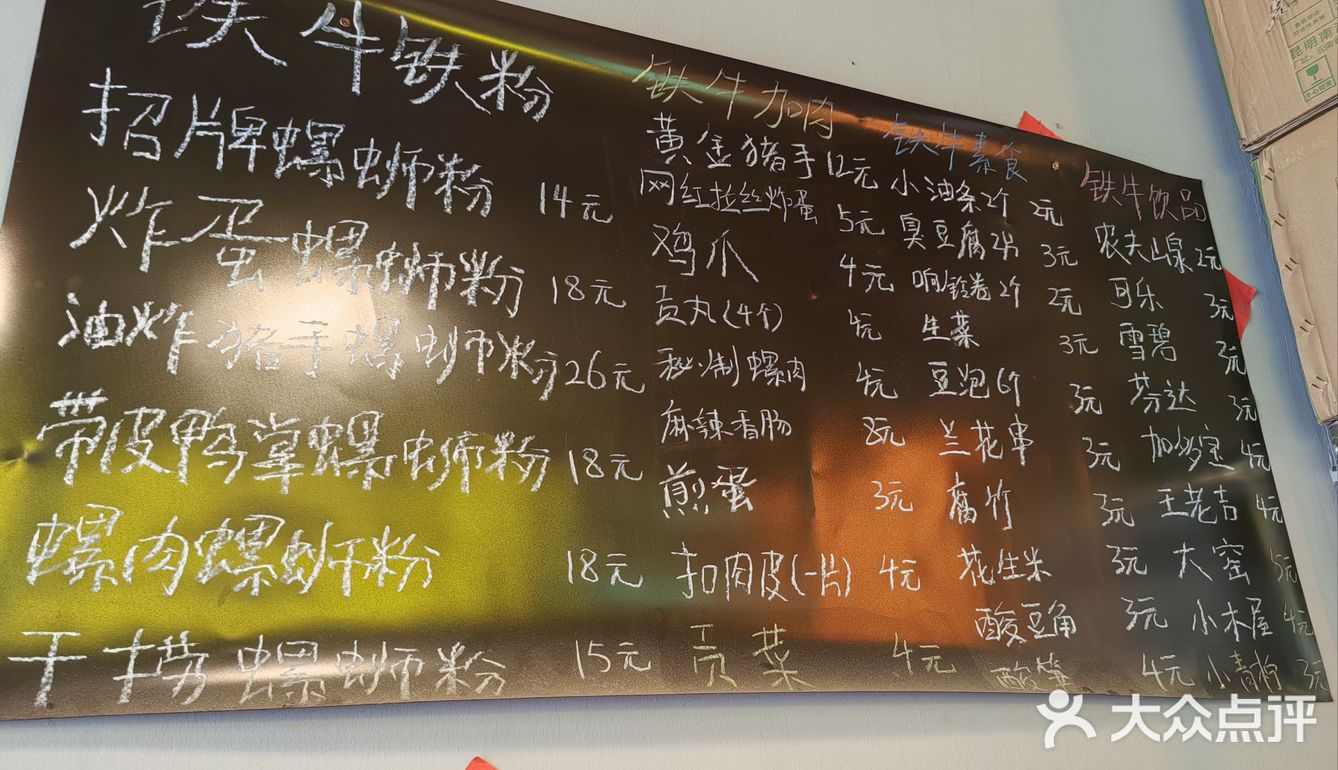 铁牛铁粉
招牌螺蛳粉 14元
炸蛋螺蛳粉 18元
油炸猪手螺蛳粉 26元
带皮鸭掌螺蛳粉 18元
螺肉螺蛳粉 18元
干捞螺蛳粉 15元
铁牛加肉
黄金猪手 12元
网红拉丝炸蛋 5元
鸡爪 4元
贡丸(4个) 4元
秘制螺肉 4元
麻辣香肠 8元
煎蛋 3元
扣肉皮(一片) 4元
贡菜 4元
铁牛素食
小油条2个 2元
臭豆腐2片 3元
响铃卷2个 2元
生菜 3元
豆泡6个 3元
兰花串 3元
腐竹 3元
花生米 3元
酸豆角 3元
酸笋 4元
铁牛饮品
农夫山泉 2元
可乐 3元
雪碧 3元
芬达 3元
加多宝 4元
王老吉 4元
大窑 5元
小木屋 4元
小青柠 3元
昆明南
大众点评